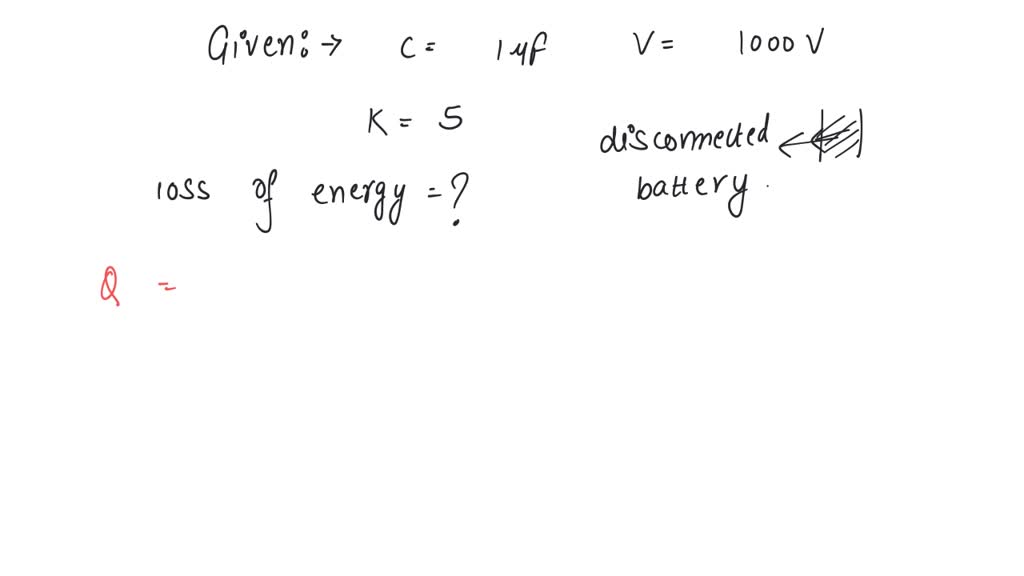 Given:→ C = 1 μf V = 1000 V
K = 5
disconnected
battery.
loss of energy = ?
Q =